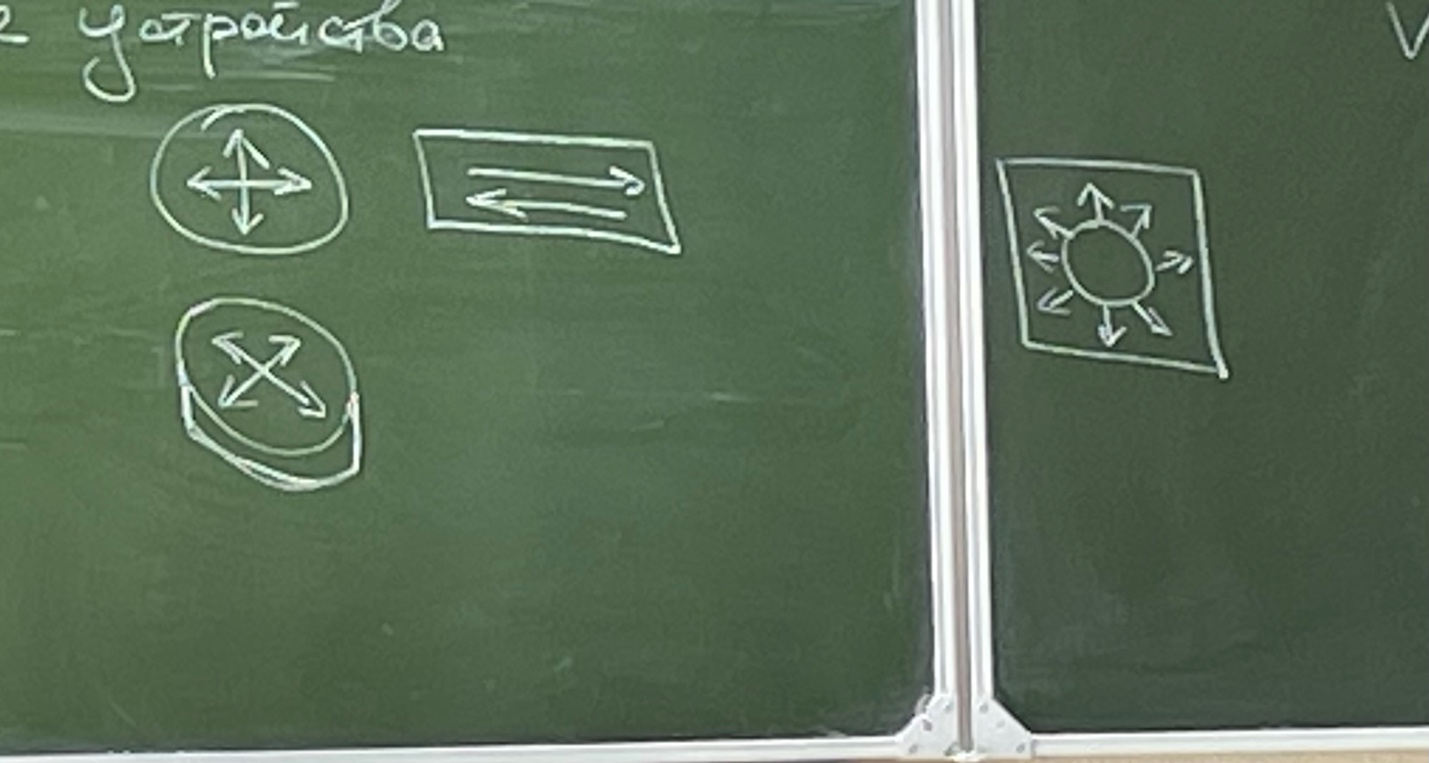 устройства